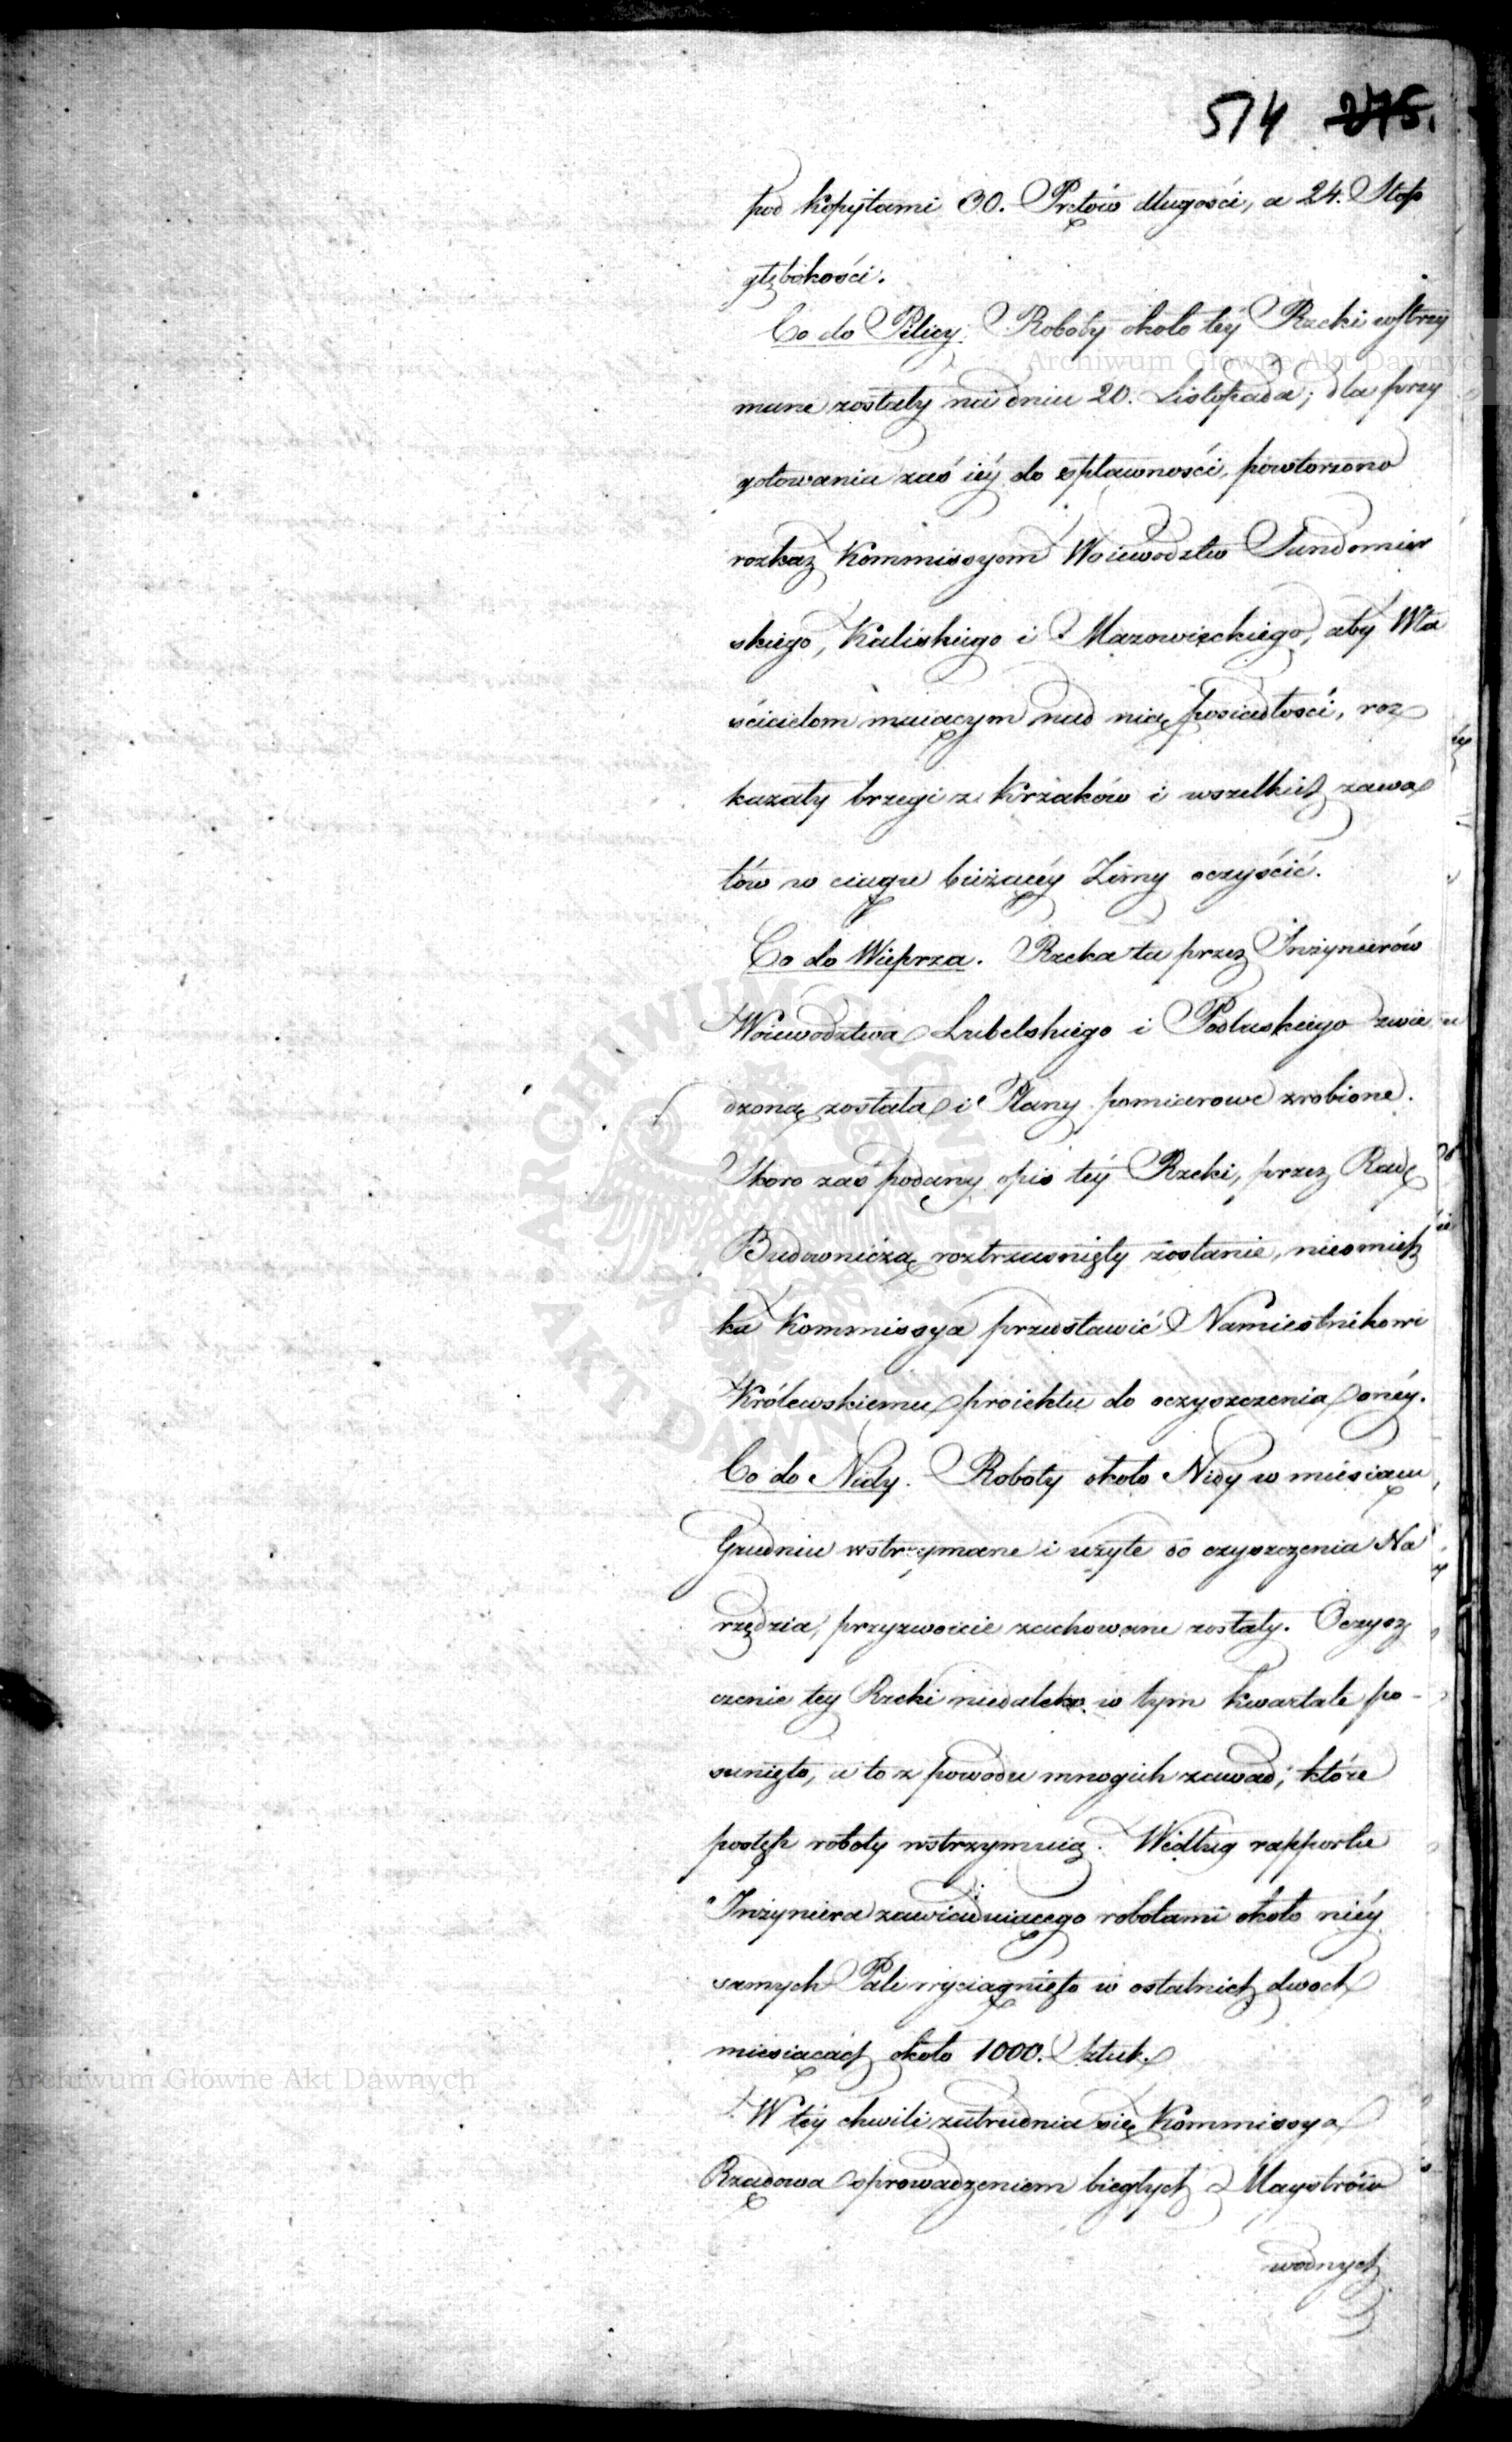 514 275.
pod kopytami 30. Prętów długości, a 24. Stop
głębokości.
Co do Pilicy. Roboty około téy Rzeki wstrzy
mane zostały na dniu 20. Listopada; dla przy
gotowania zaś iéy do spławności, powtorzono
rozkaz Kommissyom Woiewodztw Sandomir
skiego, Kaliskiego i Mazowieckiego, aby Wła
ścicielom maiącym nad nią posiadłości, roz
kazały brzegi z Krzaków i wszelkich zawa
łów w ciągu bieżącéy Zimy oczyścić.
Co do Wieprza. Rzeka ta przez Inżynierów
Woiewodztwa Lubelskiego i Podlaskiego zwie
dzoną została i Plany pomiarowe zrobione.
Skoro zaś podany opis téy Rzeki, przez Radę
Budowniczą roztrząśnięty zostanie, nieomiesz
ka Kommissya przedstawić Namiestnikowi
Królewskiemu proiektu do oczyszczenia onéy.
Co do Nidy. Roboty około Nidy w miesiącu
Grudniu wstrzymane i użyte do czyszczenia Na
rzędzia, przyzwoicie zachowane zostały. Oczysz
czenie tey Rzeki niedaleko w tym kwartale po-
sunięto, a to z powodu mnogich zawad, które
postęp roboty wstrzymuią. Według rapportu
Inżyniera zawiaduiącego robotami około niéy
samych Pali wyciągnięto w ostatnich dwoch
miesiącach około 1000. Sztuk.
W téy chwili zatrudnia się Kommissya
Rządowa sprowadzeniem biegłych Maystrów
wodnych
Archiwum Główne Akt Dawnych
ARCHIWUM GŁÓWNE AKT DAWNYCH
Archiwum Główne Akt Dawnych